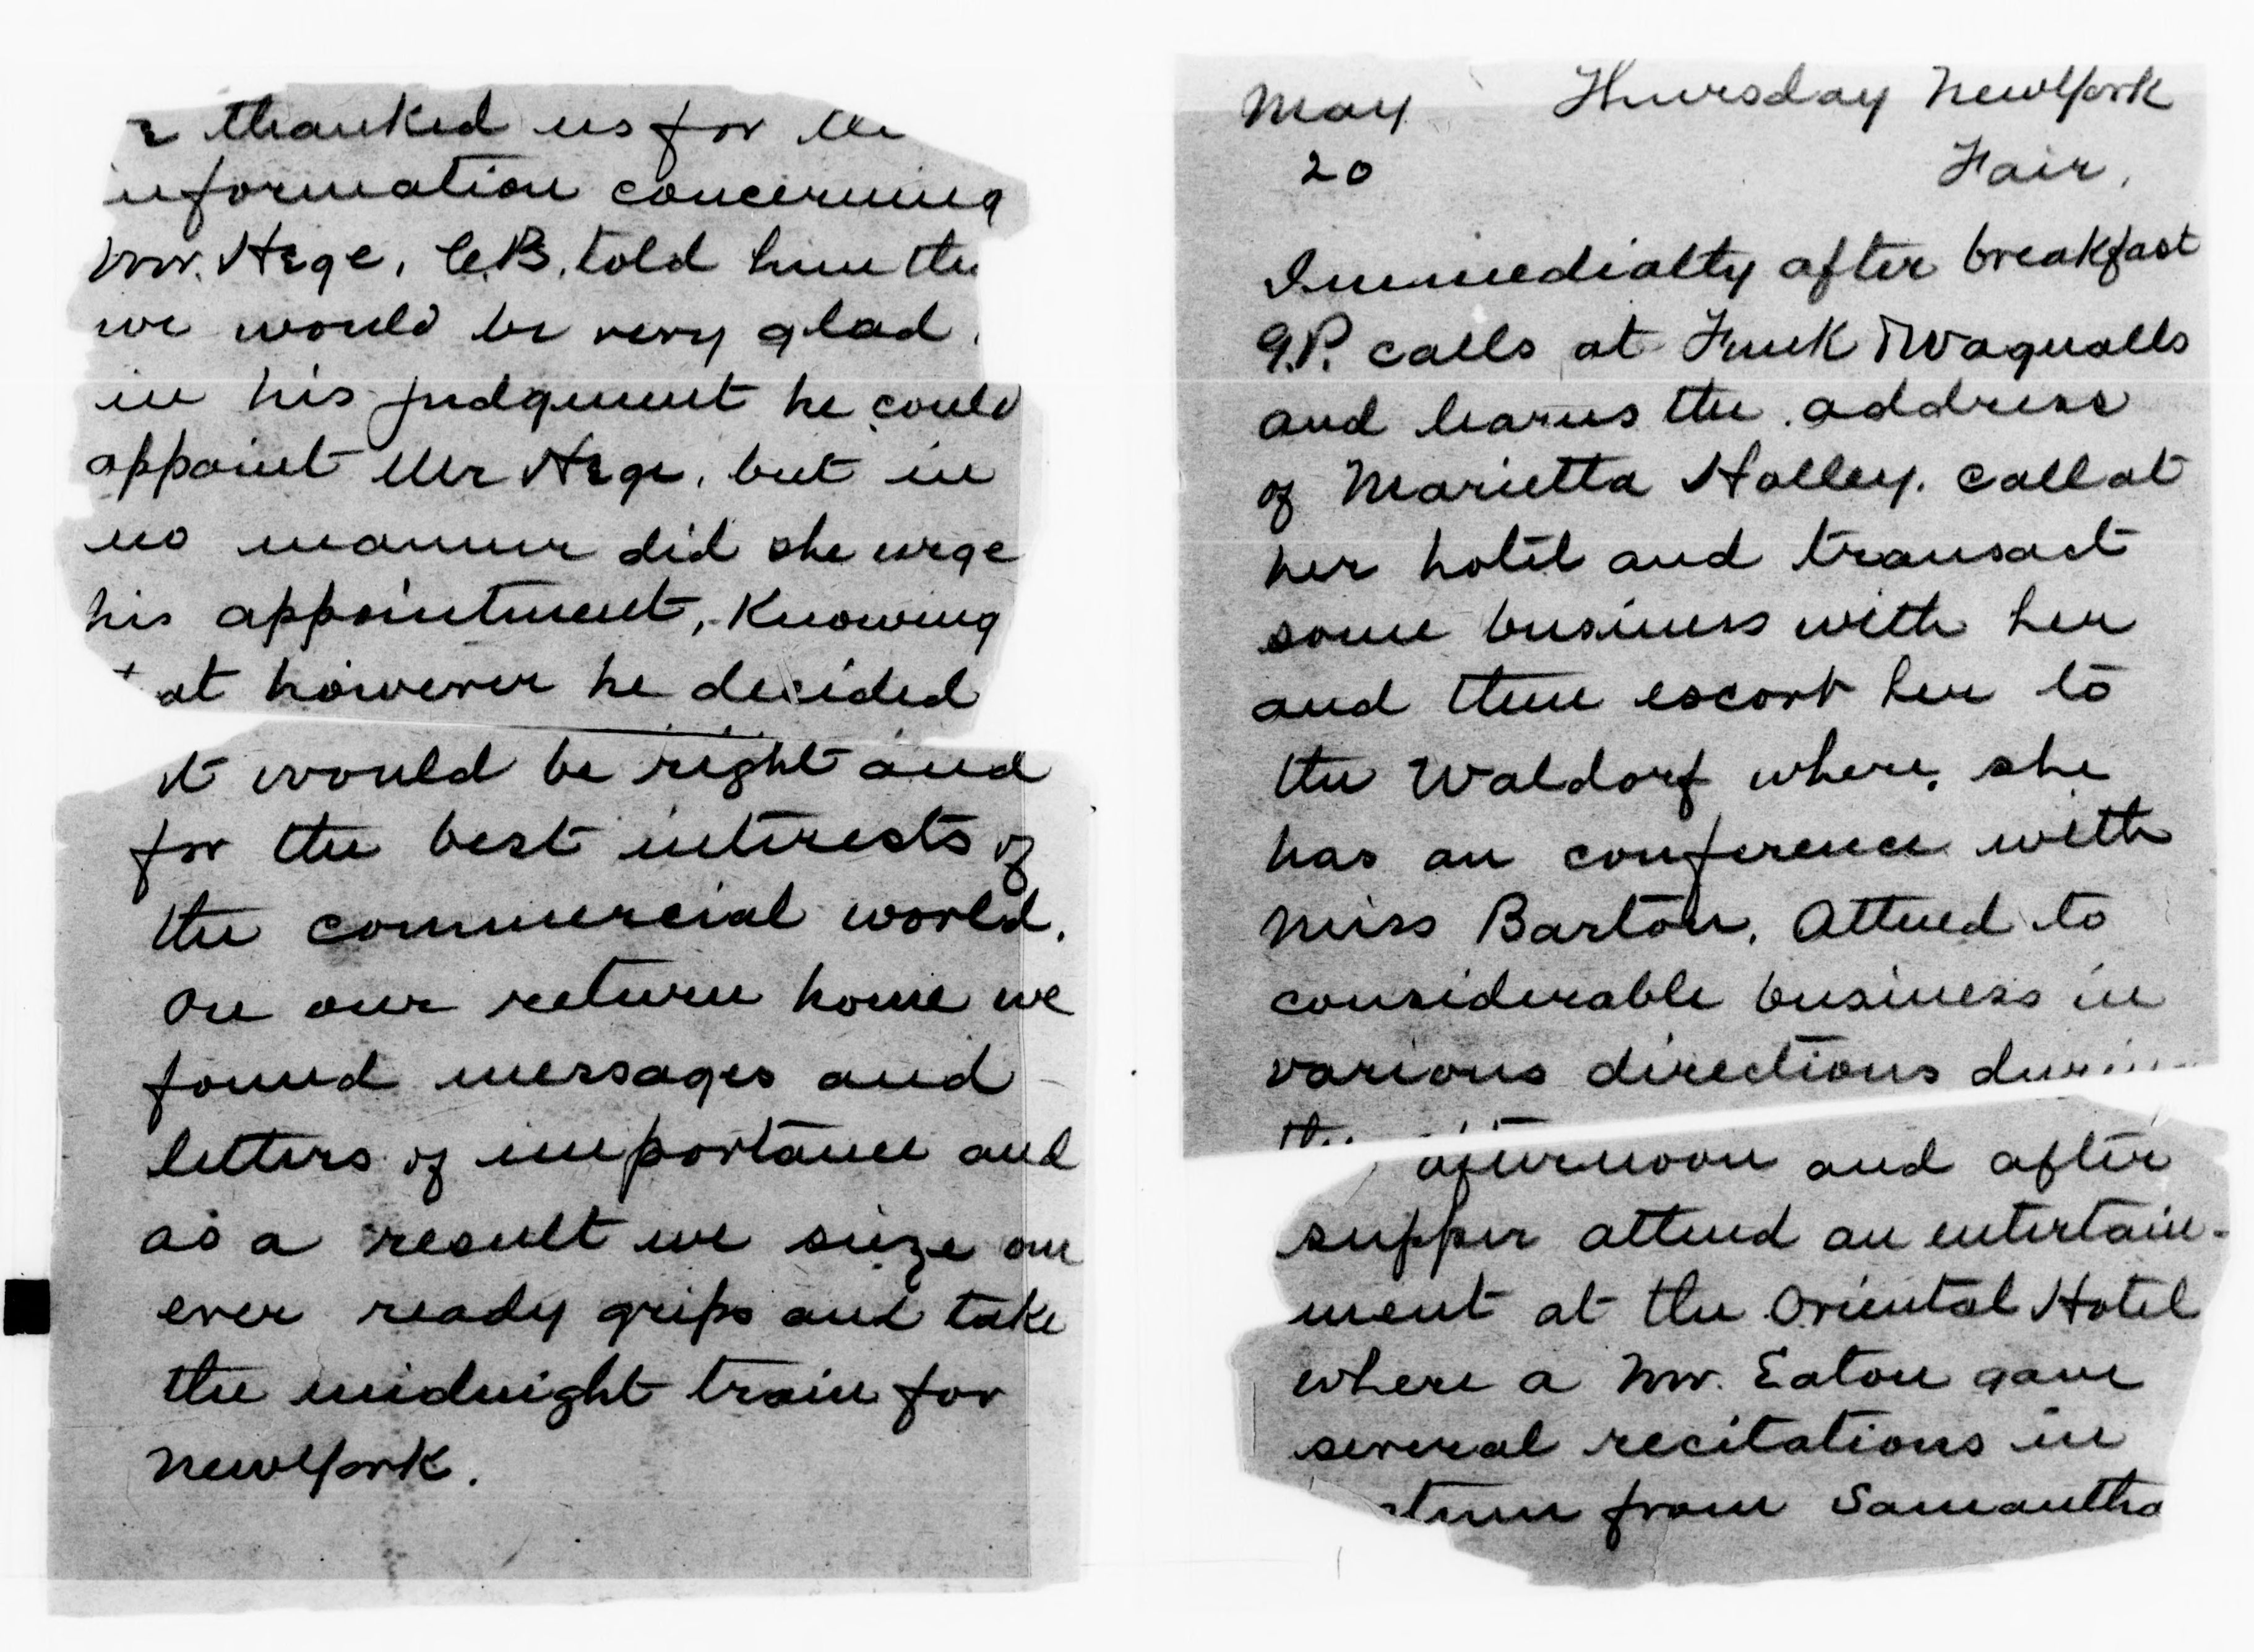 thanked us for the
information concerning
Mr. Hege, C.B. told him tha
we would be very glad
in his judgement he could
appoint Mr Hege, but in
no manner did she urge
his appointment, Knowing
at however he decided
it would be right and
for the best interests of
the commercial world.
On our return home we
found messages and
letters of importance and
as a result we sieze our
ever ready grips and take
the midnight train for
New York.
May Thursday New York
20 Fair,
Immedialty after breakfast
G.P. calls at Funk & Wagnalls
and learns the address
of Marietta Holley. Call at
her hotel and transact
some business with her
and then escort her to
the Waldorf where she
has an conference with
Miss Barton. Attend to
considerable business in
various directions durin
the
afternoon and after
supper attend an entertain-
ment at the Oriental Hotel
where a Mr. Eaton gave
several recitations in
from Samantha